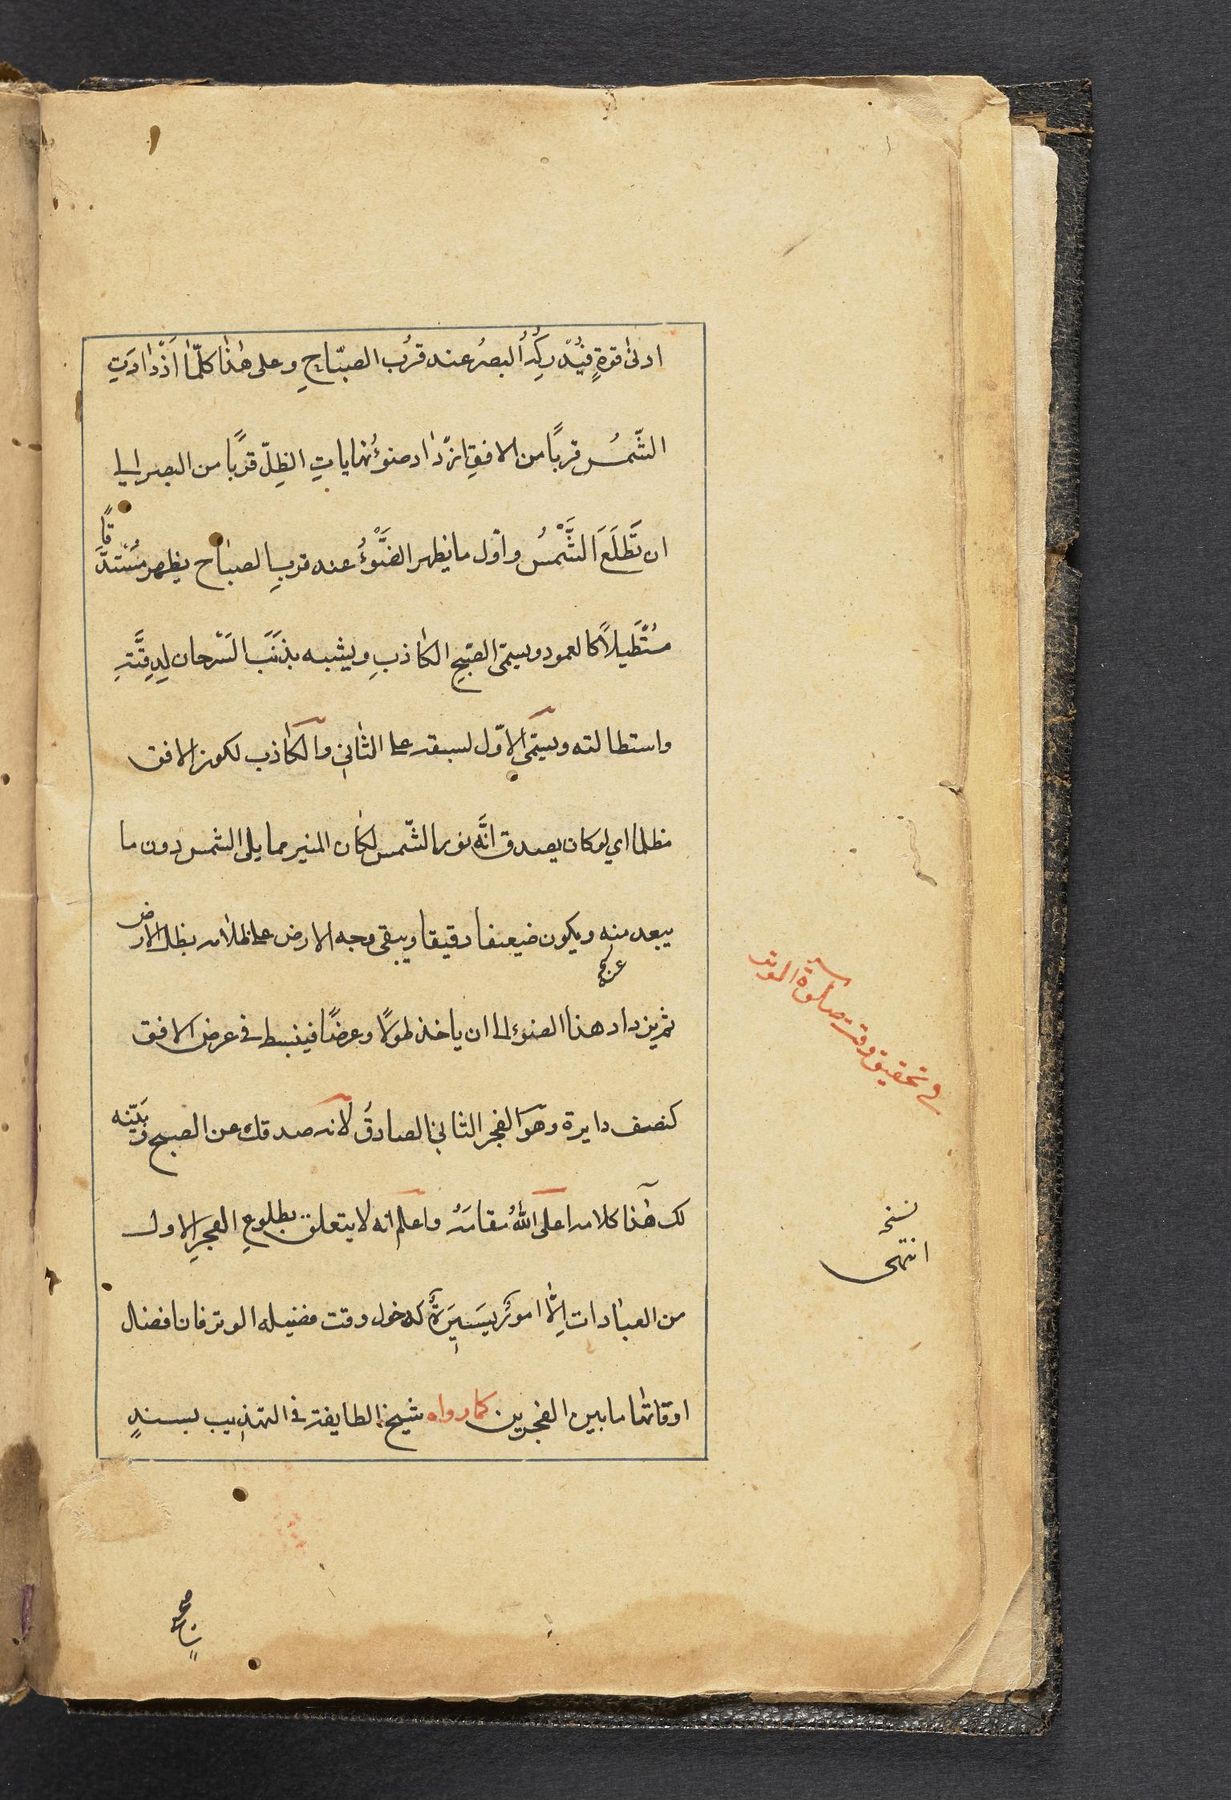 ادنى قوةٍ فيُدْرِكُهُ البصرُ عند قرُب الصبّاحِ وعلى هٰذا كلّمٰا ازْدٰادَتِ
الشّمسُ قربًا من الافقِ ازْدٰاد ضوءُ نهاياتِ الظِلّ قربًا من البصر الى
ان تَطْلَعَ الشَّمْسُ واوّل ما يظهر الضَّوْءُ عند قربِ الصبٰاح يظهر مُسْتدقًّا
مُسْتَطيلاً كالعمود ويسمّى الصّبح الكٰاذبِ ويشبه بذَنَبَ السَّرحان لِدِقَّتِهِ
واستطالته ويسمّى الاوّل لسبقه على الثٰاني والكٰاذب لكون الافق
مظلما اي لو كان يصدق انَّه نور الشّمس لكٰان المنير مما يلى الشمس دون ما
يبعد منه ويكون ضيعفا دقيقا ويبقى وجه الارض على ظلامه بظل الارض
ثم يزداد هذا الضوء الى ان ياخذ طولًا وعرضًا فينبسط في عرض الافق
كنصف دايرة وهو الفجر الثاني الصادقُ لانه صدقك عن الصبح وبَيّنه
لك هٰذا كلامه اعلى اللهُ مقامَهُ واعلم انه لا يتعلق بطلوعِ الفجرِ الاول
من العبٰادات اِلّا امورٌ يسَيرَةٌ كدخول وقت فضيله الوتر فان افضل
اوقاتها ما بين الفجرين كما رواه شيخ الطايفة في التهذيب بسندٍ
في تحقيق وقت صلوة الوتر
نسخه
انتهى